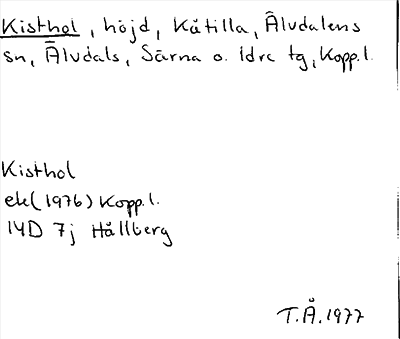 Kisthol, höjd, Kåtilla, Älvdalens
sn, Älvdals, Särna o. Idre tg, Kopp.l.
Kisthol
ek(1976) Kopp.l.
14D 7j Hållberg
T.Å.1977